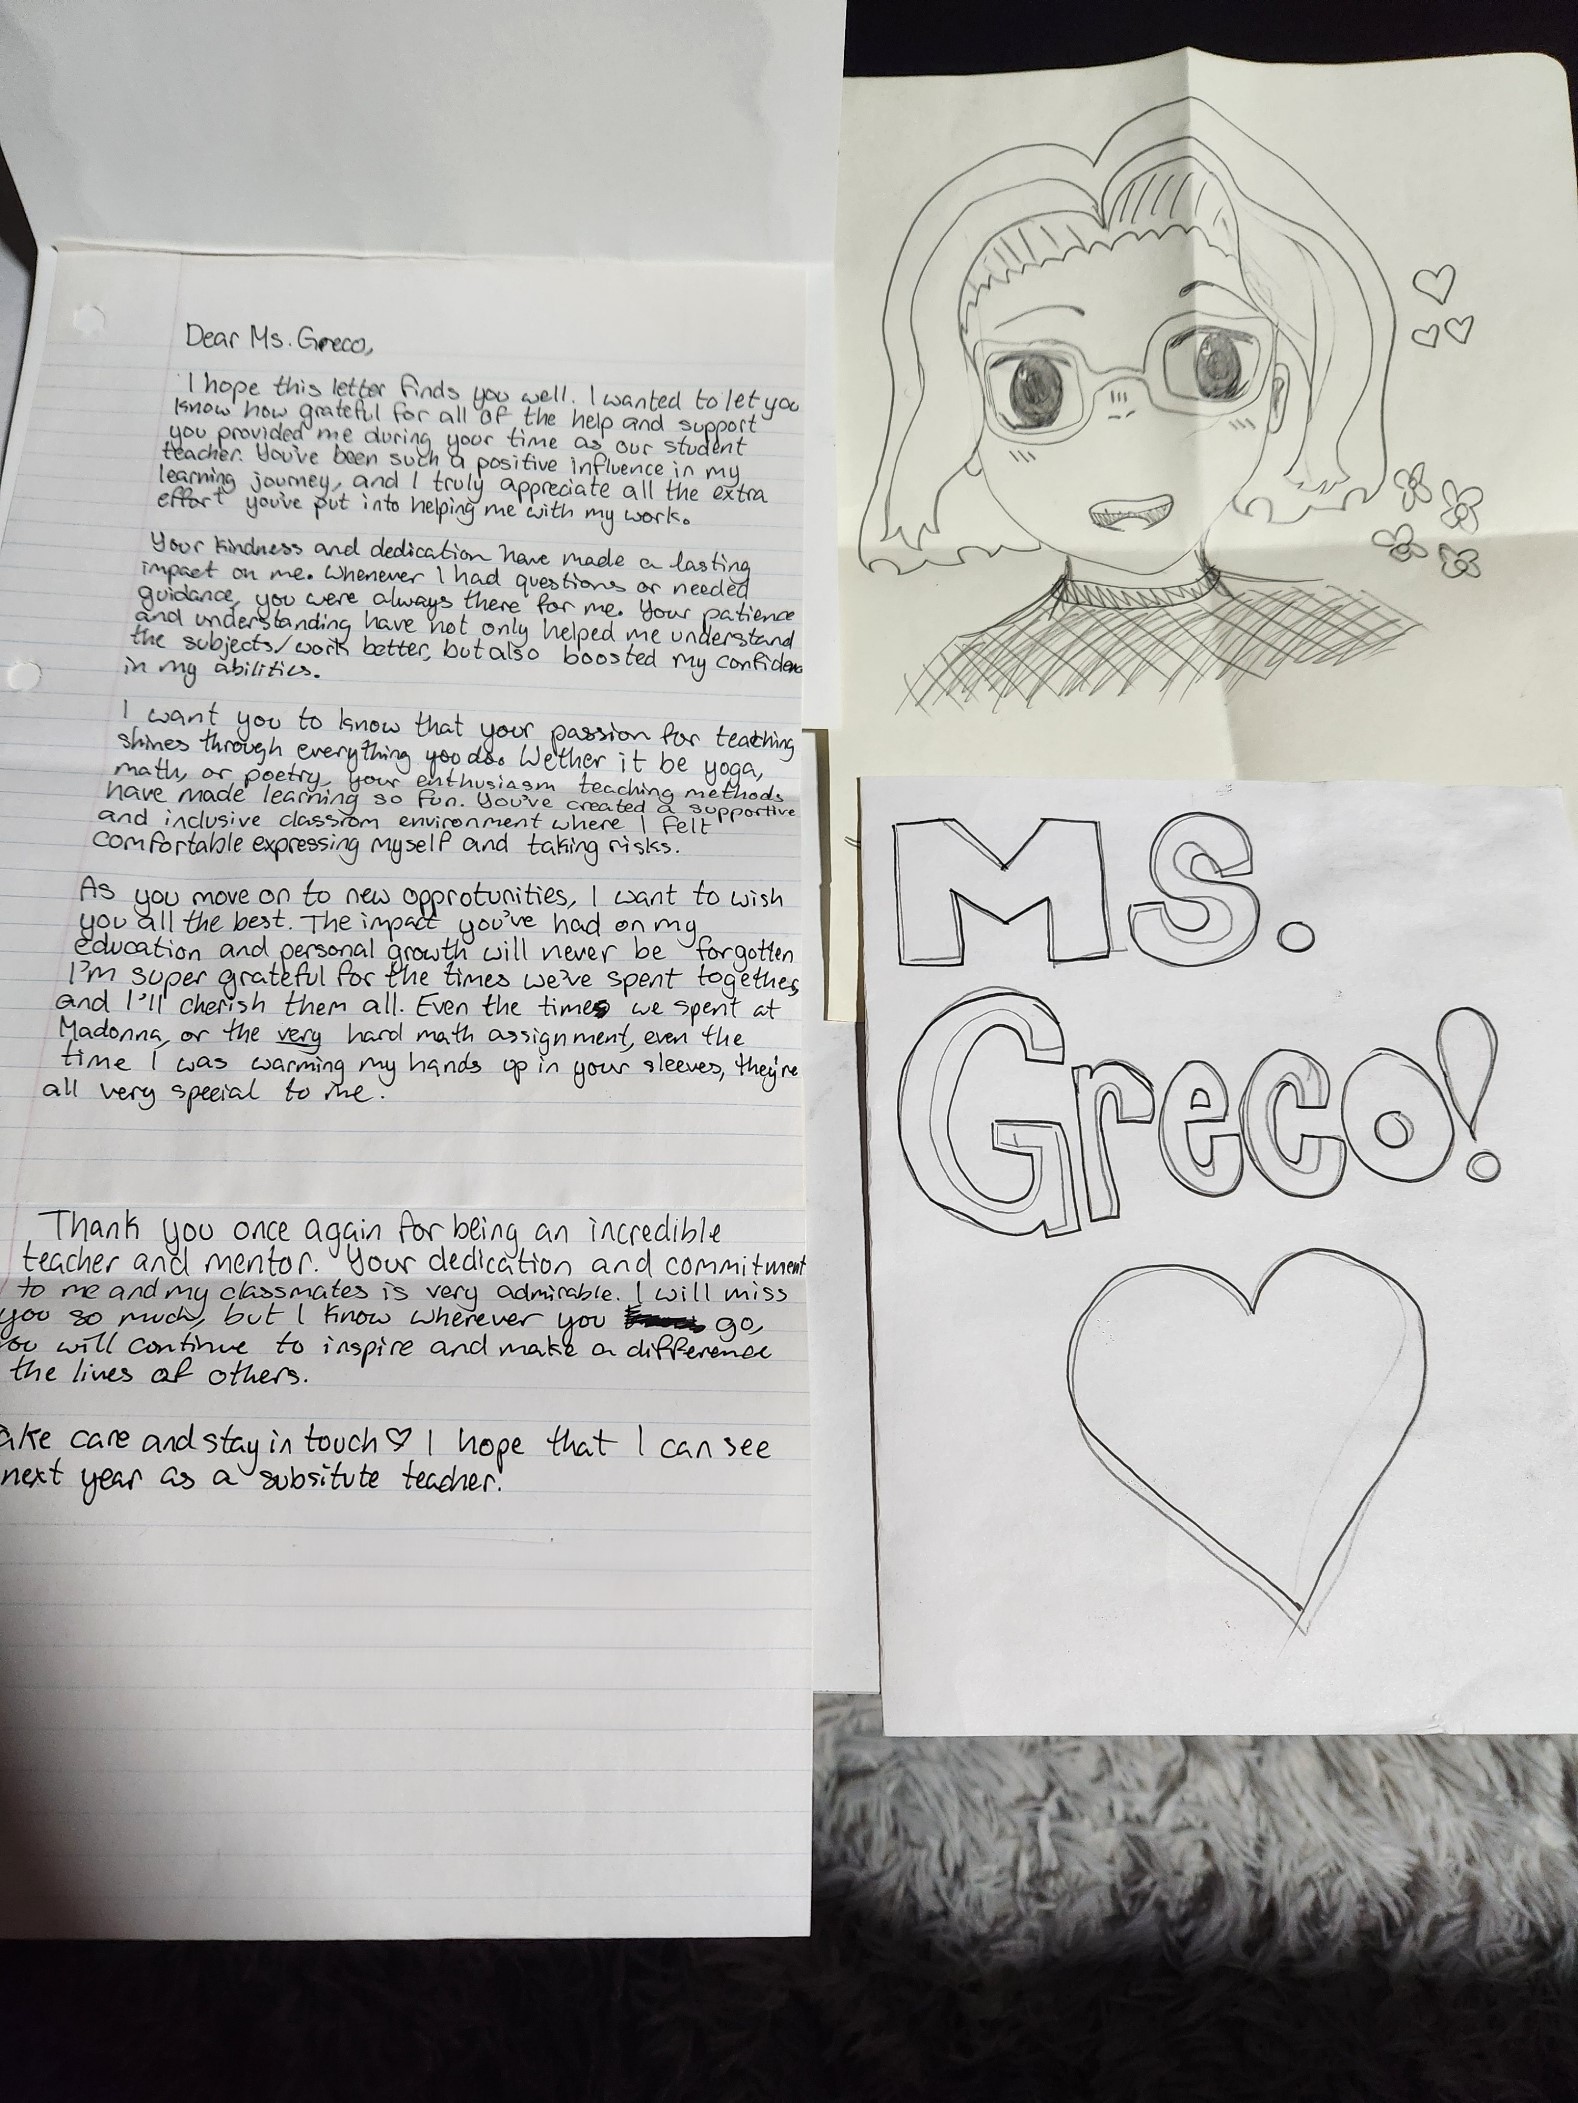 Dear Ms. Greco,
I hope this letter finds you well. I wanted to let you
know how grateful for all of the help and support
you provided me during your time as our student
teacher. You've been such a positive influence in my
learning journey, and I truly appreciate all the extra
effort you've put into helping me with my work.
Your kindness and dedication have made a lasting
impact on me. Whenever I had questions or needed
guidance, you were always there for me. Your patience
and understanding have not only helped me understand
the subjects/work better, but also boosted my confidenc
in my abilities.
I want you to know that your passion for teaching
shines through everything you do. Wether it be yoga,
math, or poetry, your enthusiasm teaching methods
have made learning so fun. You've created a supportive
and inclusive classrom environment where I felt
comfortable expressing myself and taking risks.
As you move on to new opprotunities, I want to wish
you all the best. The impact you've had on my
education and personal growth will never be forgotten
I'm super grateful for the times we've spent together,
and I'll cherish them all. Even the times we spent at
Madonna, or the very hard math assignment, even the
time I was warming my hands up in your sleeves, they're
all very special to me.
Thank you once again for being an incredible
teacher and mentor. Your dedication and commitment
to me and my classmates is very admirable. I will miss
you so much, but I know wherever you go,
ou will continue to inspire and make a difference
the lives of others.
ake care and stay in touch ♡ I hope that I can see
next year as a subsitute teacher!
Ms.
Greco!